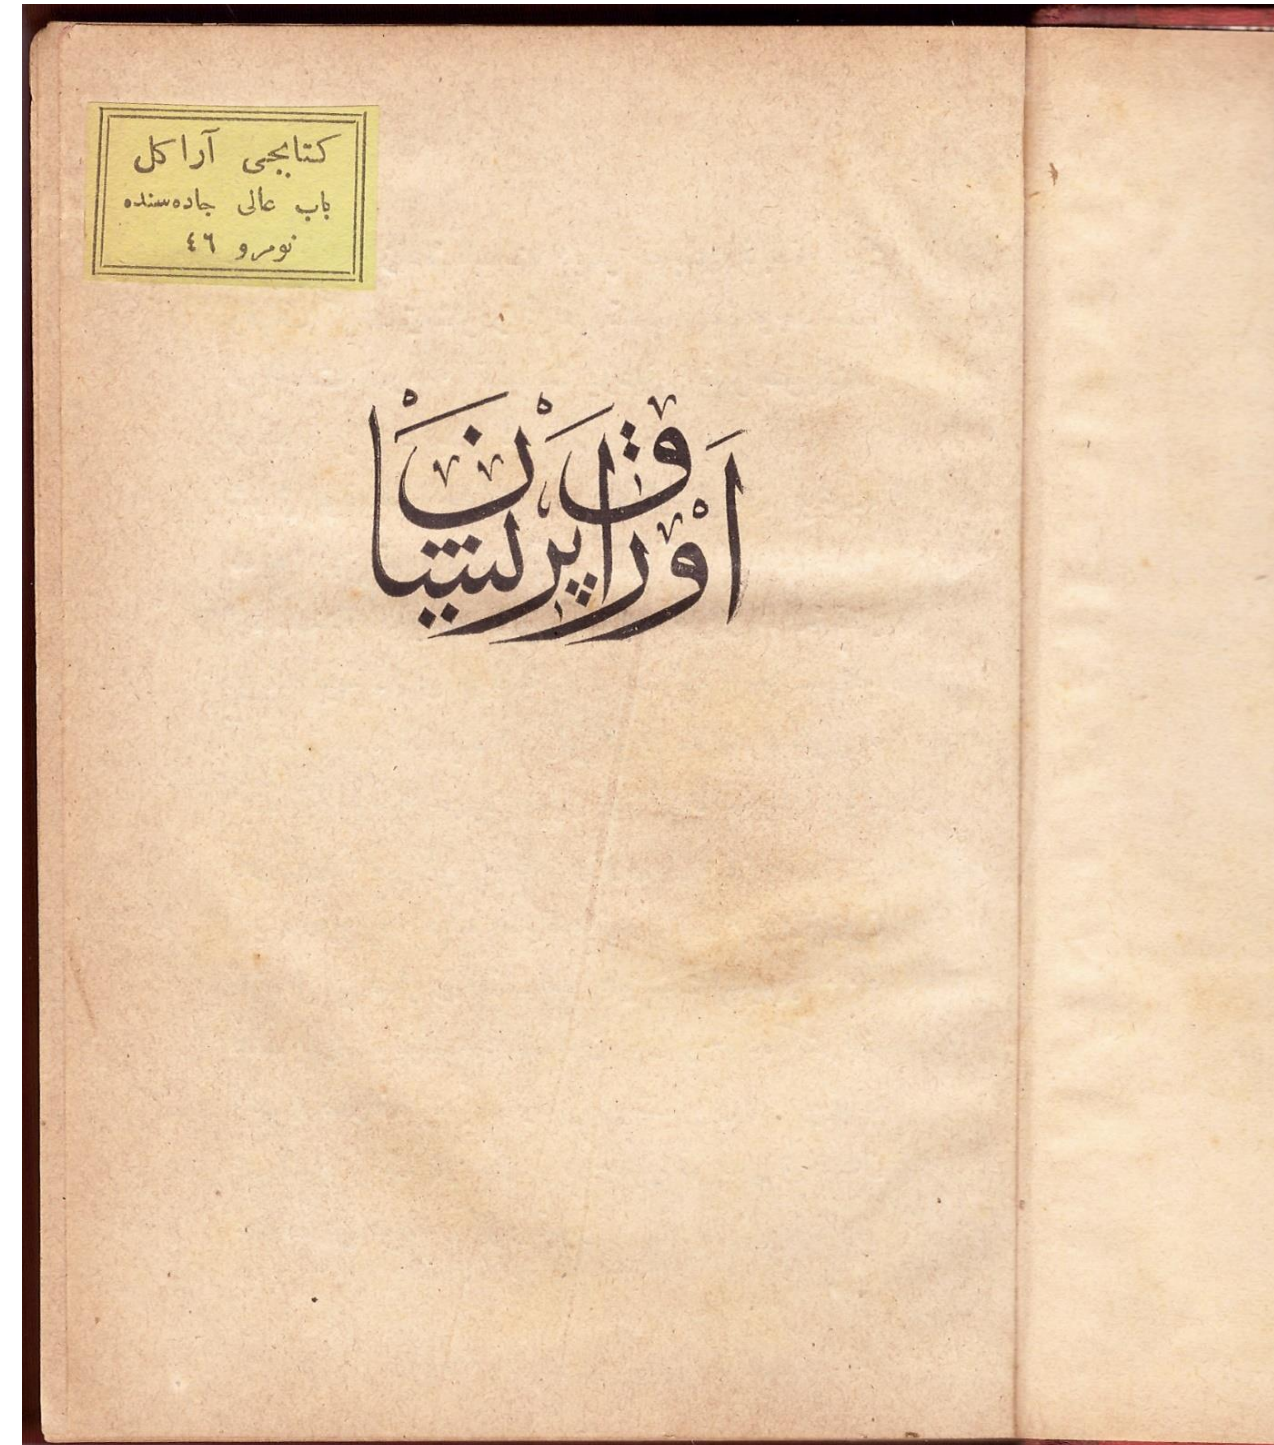 كتابجى آراكل
باب عالى جاده‌سنده
نومرو ٤٦
اوراق پریشان